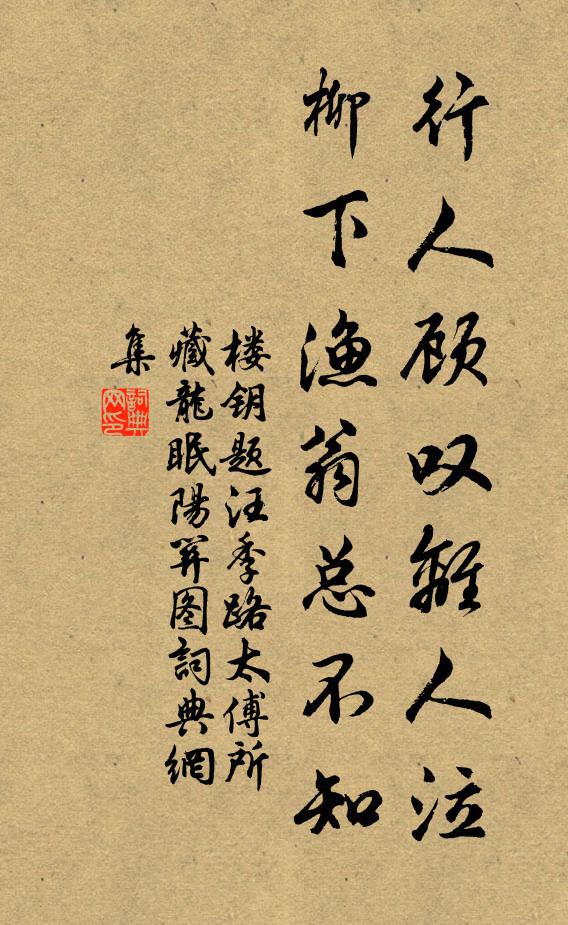 行人顾叹離人泣
柳下渔翁总不知
楼钥题汪季路太傅所
藏龍眠陽关图詞典網
集
詞典
网印